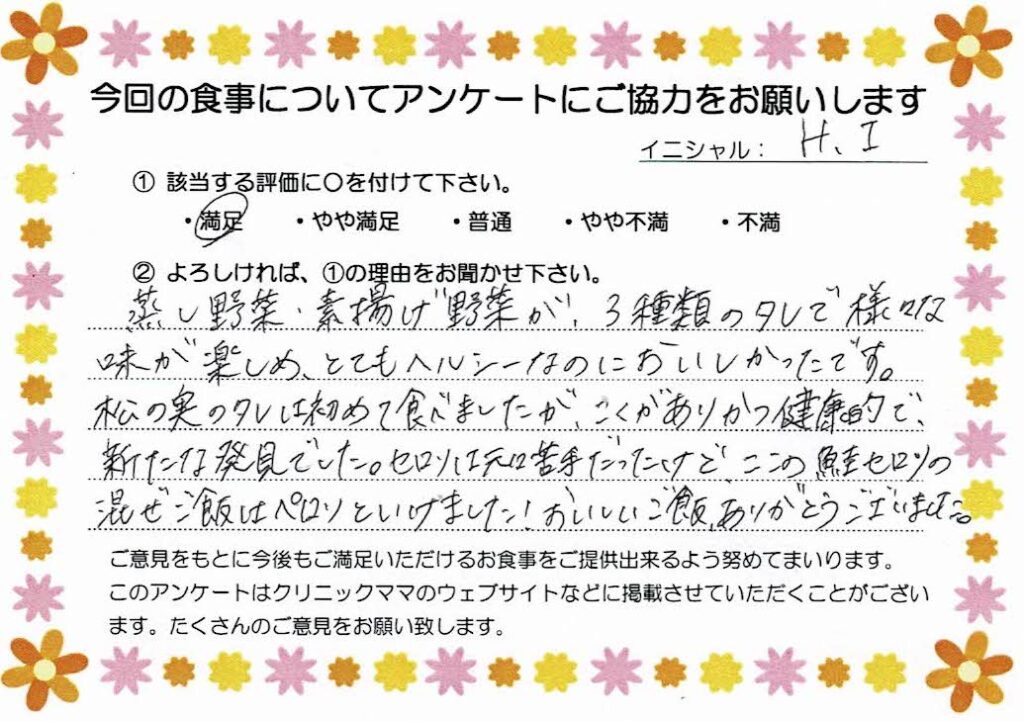 今回の食事についてアンケートにご協力をお願いします
イニシャル： H、I
① 該当する評価に〇を付けて下さい。
・満足 ・やや満足 ・普通 ・やや不満 ・不満
② よろしければ、①の理由をお聞かせ下さい。
蒸し野菜・素揚げ野菜が、3種類のタレで様々な
味が楽しめ、とてもヘルシーなのにおいしかったです。
松の実のタレは初めて食べましたが、こくがありかつ健康的で、
新たな発見でした。セロリは元々苦手だったけど、ここの鮭セロリの
混ぜご飯はペロリといけました！おいしいご飯、ありがとうございました。
ご意見をもとに今後もご満足いただけるお食事をご提供出来るよう努めてまいります。
このアンケートはクリニックママのウェブサイトなどに掲載させていただくことがござい
ます。たくさんのご意見をお願い致します。